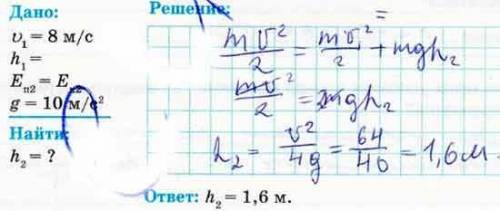 Дано:
υ₁ = 8 м/с
h₁ =
Eп2 = E
g = 10 м/с²
Найти:
h₂ = ?
Решение:
=
mυ²/2 = mυ²/2 + mgh₂
mυ²/2 = 2mgh₂
h₂ = υ²/4g = 64/40 = 1,6 м.
Ответ: h₂ = 1,6 м.